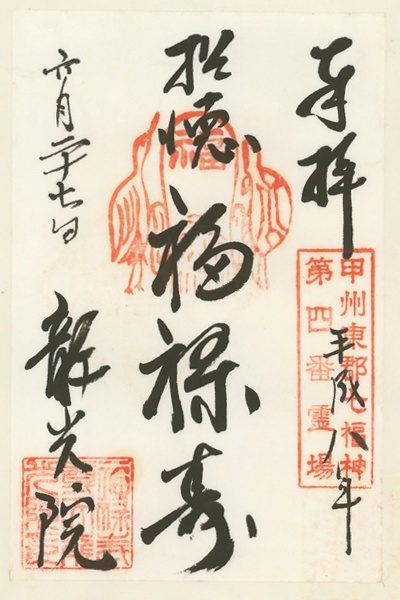 奉拝
甲州東郡七福神
第四番霊場
平成八年
招徳
福禄寿
六月二十七日
龍光院